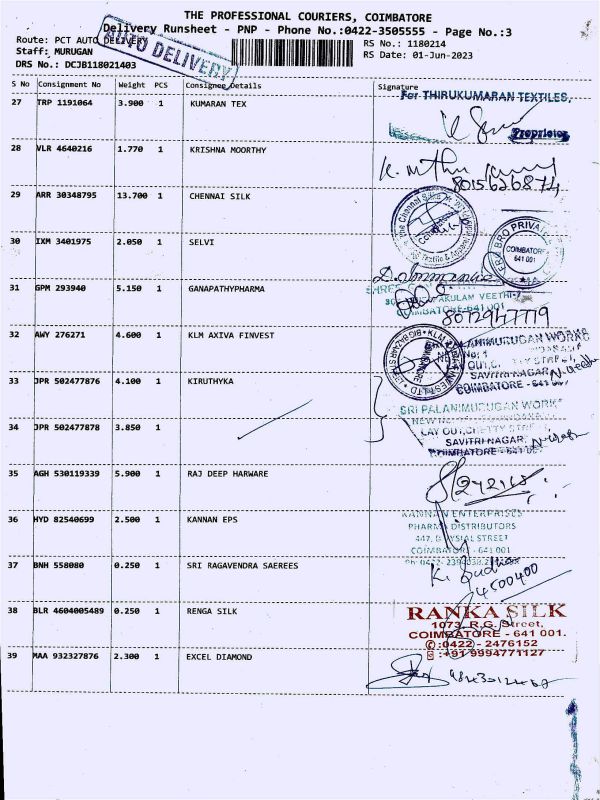 THE PROFESSIONAL COURIERS, COIMBATORE
Delivery Runsheet - PNP - Phone No.:0422-3505555 - Page No.:3
Route: PCT AUTO DELIVERY
RS No.: 1180214
Staff: MURUGAN
RS Date: 01-Jun-2023
DRS No.: DCJB118021403
AUTO DELIVERY
S No Consignment No Weight PCS Consignee Details Signature
27 TRP 1191064 3.900 1 KUMARAN TEX
For THIRUKUMARAN TEXTILES,
Proprietor
28 VLR 4640216 1.770 1 KRISHNA MOORTHY
29 ARR 30348795 13.700 1 CHENNAI SILK
30 IXM 3401975 2.050 1 SELVI
COIMBATORE
641 001
31 GPM 293940 5.150 1 GANAPATHYPHARMA
8012947779
32 AWY 276271 4.600 1 KLM AXIVA FINVEST
33 JPR 502477876 4.100 1 KIRUTHYKA
SAVITRI NAGAR
COIMBATORE - 641
SRI PALANIMURUGAN WORK
34 JPR 502477878 3.850 1
SAVITRI NAGAR,
COIMBATORE - 641
35 AGH 530119339 5.900 1 RAJ DEEP HARWARE
36 HYD 82540699 2.500 1 KANNAN EPS
KANNAN ENTERPRISES
PHARMA DISTRIBUTORS
COIMBATORE - 641 001
37 BNH 558080 0.250 1 SRI RAGAVENDRA SAEREES
38 BLR 4604005489 0.250 1 RENGA SILK
RANKA SILK
1073, R.G. Street,
COIMBATORE - 641 001.
:0422 - 2476152
:+91 9994771127
39 MAA 932327876 2.300 1 EXCEL DIAMOND